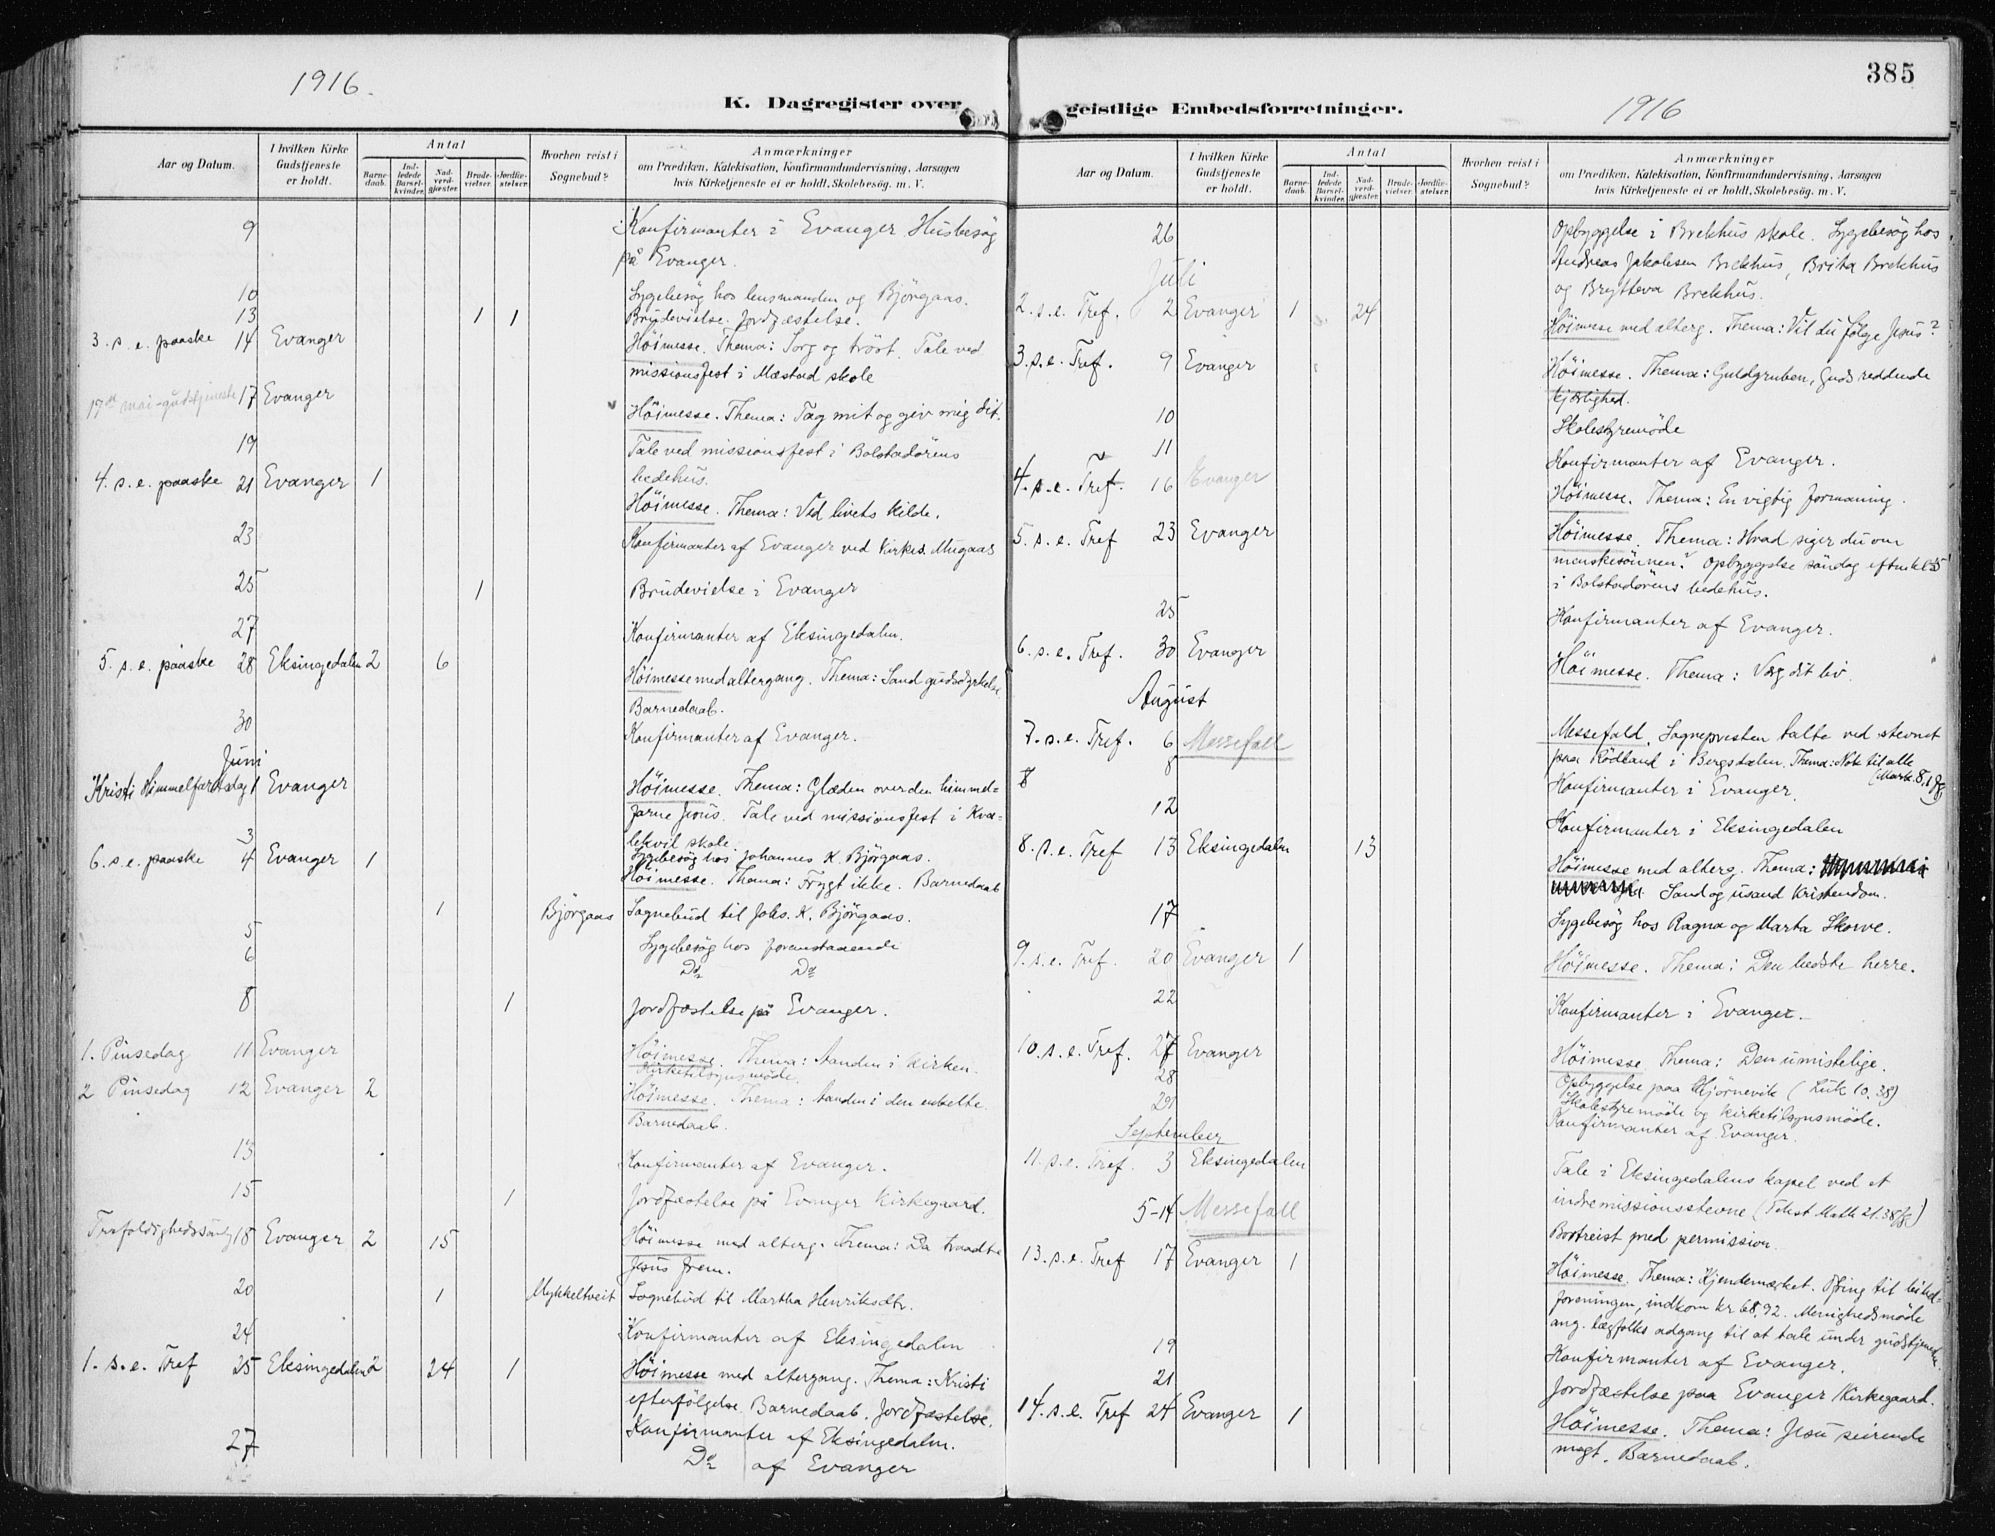 1916.
K. Dagregister over
Aar og Datum.
I hvilken Kirke Gudstjeneste er holdt.
Antal
Barnedaab.
Indledede Barselkvinder.
Nadverdgjæster.
Brudevielser.
Jordfæstelser.
Hvorhen reist i Sognebud?
Anmærkninger
om Prædiken, Katekisation, Konfirmandundervisning, Aarsagen
hvis Kirketjeneste ei er holdt, Skolebesøg. m. V.
9 Konfirmanter i Evanger Husbesøg
på Evanger.
10 Sygebesøg hos lensmanden og Björgaas.
13 1 1 Brudevielse. Jordfæstelse.
3. s. e. paaske 14 Evanger Höimesse. Thema: Sorg og tröst. Tale ved
missionsfest i Mæstad skole
17de mai-gudstjeneste 17 Evanger Höimesse. Thema: Tag mit og giv mig dit.
19 Tale ved missionsfest i Bolstadörens
bedehus.
4. s. e. paaske 21 Evanger 1 Höimesse. Thema: Ved livets kilde.
23 Konfirmanter af Evanger ved Kirkes. Mugaas
25 1 Brudevielse i Evanger
27 Konfirmanter af Eksingedalen.
5. s. e. paaske 28 Eksingedalen 2 6 Höimesse med altergang. Thema: Sand gudsdyrkelse.
Barnedaab.
30 Konfirmanter af Evanger.
Juni
Kristi Himmelfartsdag 1 Evanger Höimesse. Thema: Glæden over den himmel-
farne Jesus. Tale ved missionsfest i Kva-
lekvil skole.
3 Sygebesøg hos Johannes K. Björgaas.
6. s. e. paaske 4 Evanger 1 Höimesse. Thema: Frygt ikke. Barnedaab
1 Björgaas Sognebud til Johs. K. Björgaas.
5 Sygebesøg hos foranstaaende
6 Do Do
8 1 Jordfæstelse på Evanger.
1. Pinsedag 11 Evanger Höimesse. Thema: Aanden i kirken.
Kirketilsynsmöde.
2 Pinsedag 12 Evanger 2 Höimesse. Thema: Aanden i den enkelte.
Barnedaab.
13 Konfirmanter af Evanger.
15 1 Jordfæstelse på Evanger Kirkegaard.
Trefoldighedssönd. 18 Evanger 2 15 Höimesse med alterg. Thema: Da traadte
Jesus frem.
20 1 Mykkeltveit Sognebud til Martha Henriksdtr.
24 Konfirmanter af Eksingedalen
1. s. e. Tref 25 Eksingedalen 2 24 1 Höimesse med altergang. Thema: Kristi
efterfölgelse. Barnedaab. Jordfæstelse.
Konfirmanter af Eksingedalen.
27 Do af Evanger
385
geistlige Embedsforretninger.
1916
Aar og Datum.
I hvilken Kirke Gudstjeneste er holdt.
Antal
Barnedaab.
Indledede Barselkvinder.
Nadverdgjæster.
Brudevielser.
Jordfæstelser.
Hvorhen reist i Sognebud?
Anmærkninger
om Prædiken, Katekisation, Konfirmandundervisning, Aarsagen
hvis Kirketjeneste ei er holdt, Skolebesøg. m. V.
26 Opbyggelse i Brekhus skole. Sygebesøg hos
Andreas Jakobsen Brekhus, Brita Brekhus
og Brytteva Brekhus.
Juli
2. s. e. Tref. 2 Evanger 1 24 Höimesse med alterg. Thema: Vil du følge Jesus?
3. s. e. Tref. 9 Evanger Höimesse. Thema: Guldgruben, Guds reddende
kjærlighed.
10 Skolestyremöde
11 Konfirmanter af Evanger.
4. s. e. Tref. 16 Evanger Höimesse. Thema: En vigtig formaning.
5. s. e. Tref 23 Evanger Höimesse. Thema: Hvad siger du om
menskesönnen? Opbyggelse söndag efterm kl 5
i Bolstadörens bedehus.
25 Konfirmanter af Evanger.
6. s. e. Tref. 30 Evanger Höimesse. Thema: Værg dit liv.
August
7. s. e. Tref. 6 Messefall Messefald. Sognepresten talte ved stevnet
paa Rödland i Bergsdalen. Thema: Nok til alle
(Mark. 8, 1 fg.)
8 Konfirmanter i Evanger.
12 Konfirmanter i Eksingedalen
8. s. e. Tref 13 Eksingedalen 13 Höimesse med alterg. Thema:
Sand og usand Kristendom.
17 Sygebesøg hos Ragna og Marta Skorve.
9. s. e. Tref. 20 Evanger 1 Höimesse. Thema: Den bedste herre.
22 Konfirmanter i Evanger.
10. s. e. Tref. 27 Evanger Höimesse. Thema: Den umistelige.
Opbyggelse paa Hjörnevik (Luk 10. 38)
28 Skolestyremöde og kirketilsynsmöde.
29 Konfirmanter af Evanger.
September
11. s. e. Tref. 3 Eksingedalen Tale i Eksingedalens kapel ved et
indremissionsstevne (Tekst Math 21. 38 fg.)
5-14 Messefall Bortreist med permission.
13. s. e. Tref 17 Evanger 1 Höimesse. Thema: Kjendemærket. Ofring til
foreningen, indkom kr 68,92. Menighedsmöde
ang. lægfolks adgang til at tale under gudstjenesten.
19 Konfirmanter af Evanger.
21 Jordfæstelse paa Evanger Kirkegaard.
14. s. e. Tref 24 Evanger 1 Höimesse. Thema: Jesu seirende
magt. Barnedaab.